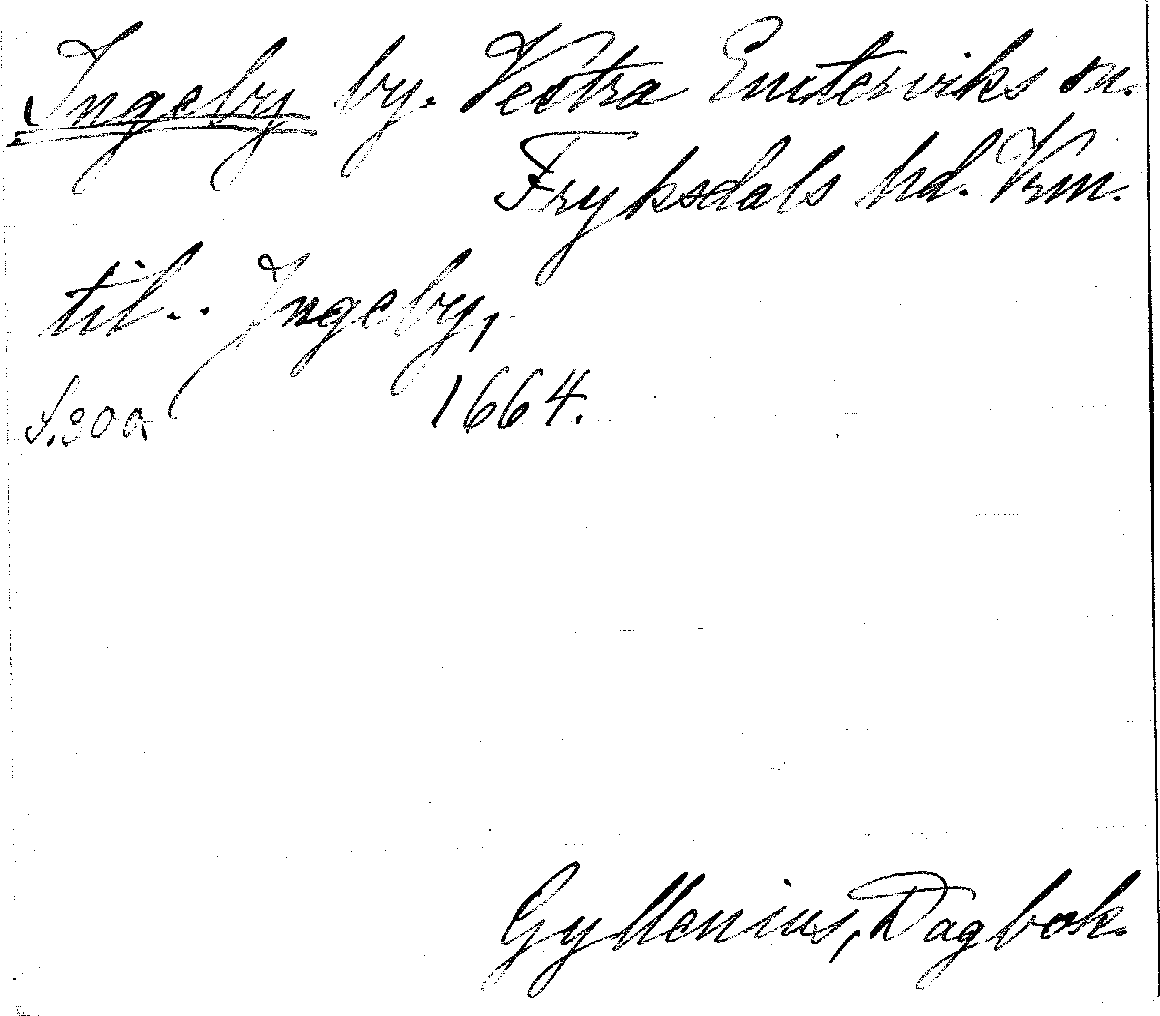 Ingeby by. Vestra Emterviks sn.
Fryksdals hd. Vrm.
til.. Ingeby,
S. 300. 1664.
Gyllenius, Dagbok.